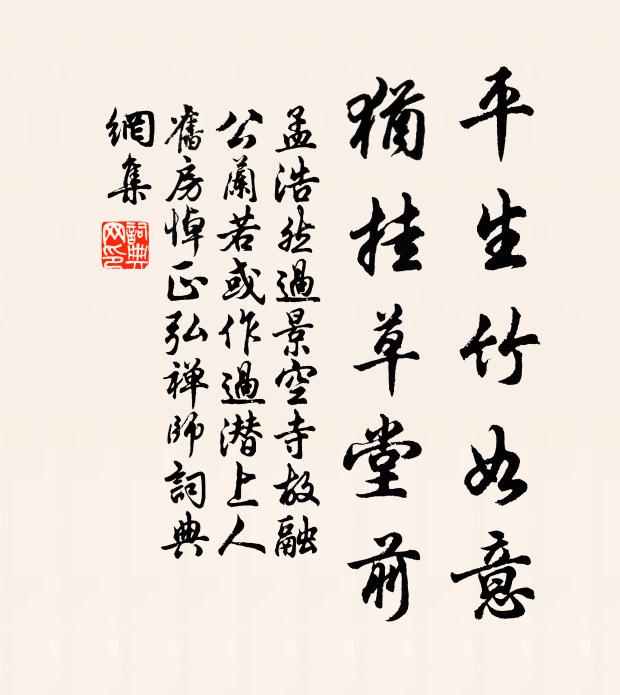 平生竹如意
猶挂草堂前
孟浩然過景空寺故融
公蘭若或作過潜上人
舊房悼正弘禅師詞典
網集
詞典
网印